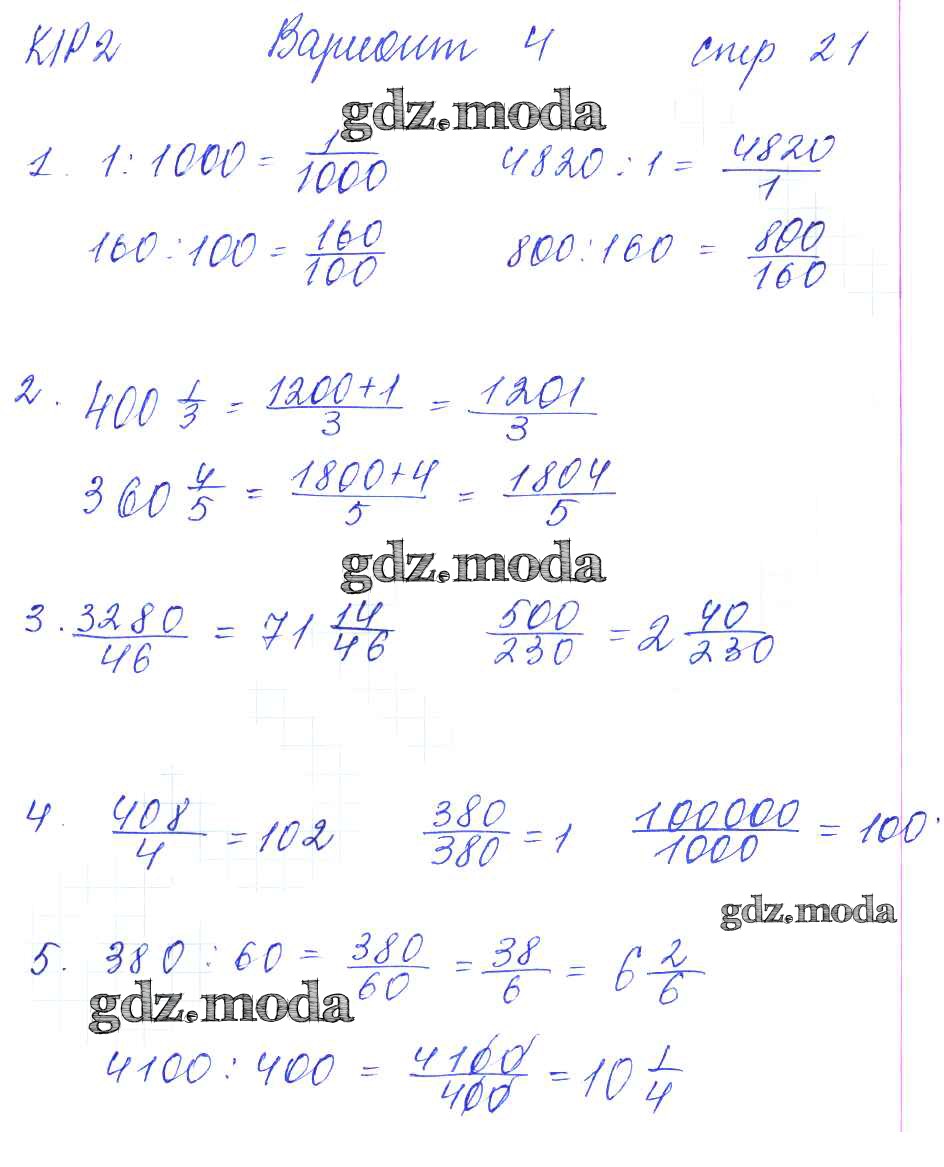 К/Р 2 Вариант 4 стр 21
gdz.moda
1. 1 : 1000 = 1/1000 4820 : 1 = 4820/1
160 : 100 = 160/100 800 : 160 = 800/160
2. 400 1/3 = 1200+1/3 = 1201/3
360 4/5 = 1800+4/5 = 1804/5
gdz.moda
3. 3280/46 = 71 14/46 500/230 = 2 40/230
4. 408/4 = 102 380/380 = 1 100000/1000 = 100.
gdz.moda
5. 380 : 60 = 380/60 = 38/6 = 6 2/6
gdz.moda
4100 : 400 = 4100/400 = 10 1/4